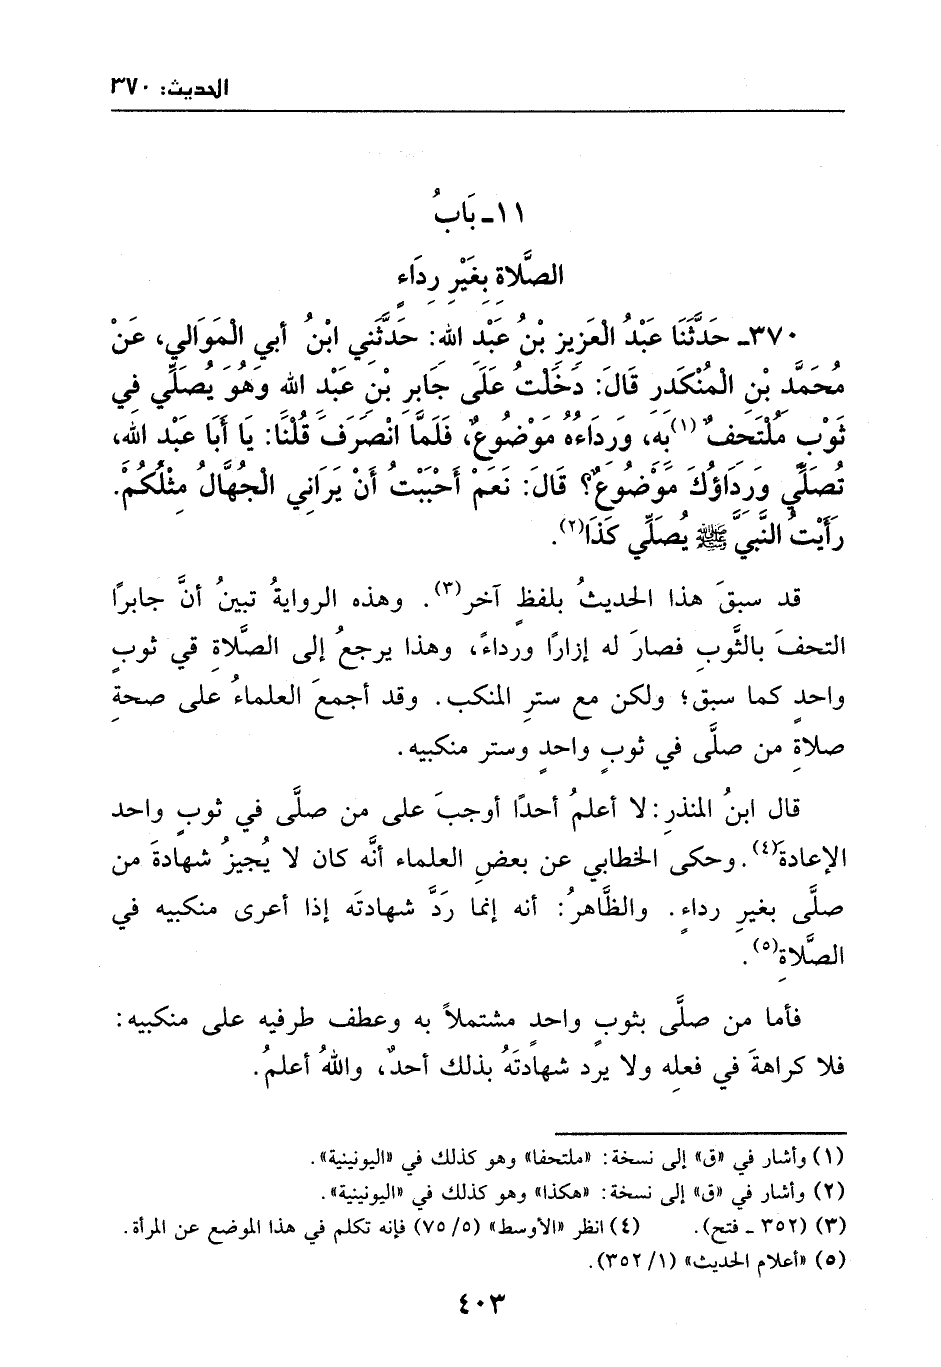 الحديث: ٣٧٠
١١ـ بَابُ
الصَّلاةِ بِغَيْرِ رِدَاءٍ
٣٧٠ـ حَدَّثَنَا عَبْدُ الْعَزِيزِ بْنُ عَبْدِ الله: حَدَّثَنِي ابْنُ أَبي الْمَوَالي، عَنْ
مُحَمَّدِ بْنِ الْمُنْكَدِرِ قَالَ: دَخَلْتُ عَلَى جَابِرِ بْنِ عَبْدِ الله وَهُوَ يُصَلِّي فِي
ثَوْبٍ مُلْتَحِفٌ(١)بِهِ، وَرِدَاءُهُ مَوْضُوعٌ، فَلَمَّا انْصَرَفَ قُلْنَا: يَا أَبَا عبْدِ الله،
تُصَلِّي وَرِدَاؤُكَ مَوْضُوعٌ؟ قَالَ: نَعَمْ أَحْبَبْتُ أَنْ يَرَانِي الْجُهَّالُ مِثْلُكُمْ.
رَأَيْتُ النَّبِيَّ ﷺ يُصَلِّي كَذَا(٢).
قد سبقَ هذا الحديثُ بلفظٍ آخر(٣). وهذه الروايةُ تبينُ أنَّ جابرًا
التحفَ بالثَّوبِ فصارَ له إزارًا ورداءً، وهذا يرجعُ إلى الصَّلاةِ قي ثوبٍ
واحدٍ كما سبق؛ ولكن مع سترِ المنكب. وقد أجمعَ العلماءُ على صحةِ
صلاةِ من صلَّى في ثوبٍ واحدٍ وستر منكبيه.
قال ابنُ المنذرِ: لا أعلمُ أحدًا أوجبَ على من صلَّى في ثوبٍ واحد
الإعادةَ(٤). وحكى الخطابي عن بعضِ العلماء أنَّه كان لا يُجيزُ شهادةَ من
صلَّى بغيرِ رداءٍ. والظَّاهرُ: أنه إنما ردَّ شهادتَه إذا أعرى منكبيه في
الصَّلاةِ(٥).
فأما من صلَّى بثوبٍ واحدٍ مشتملاً به وعطف طرفيه على منكبيه:
فلا كراهةَ في فعلِه ولا يرد شهادتَهُ بذلك أحدٌ، واللهُ أعلمُ.
(١) وأشار في «ق» إلى نسخة: «ملتحفا» وهو كذلك في «اليونينية».
(٢) وأشار في «ق» إلى نسخة: «هكذا» وهو كذلك في «اليونينية».
(٣) (٣٥٢ ـ فتح). (٤) انظر «الأوسط» (٥/ ٧٥) فإنه تكلم في هذا الموضع عن المرأة.
(٥) «أعلام الحديث» (١/ ٣٥٢).
٤٠٣